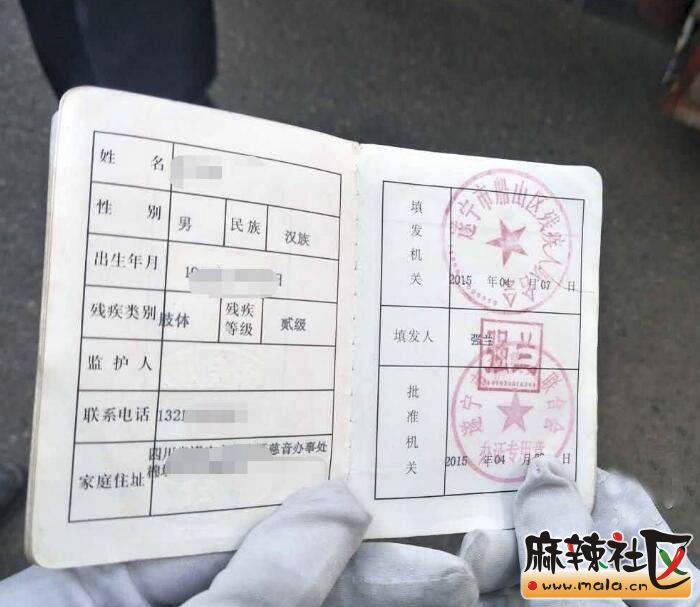 姓 名
性 别 男 民族 汉族
出生年月 19 日
残疾类别 肢体 残疾等级 贰级
监护人
联系电话 1321
家庭住址 四川 慈音办事处
填发机关
遂宁市船山区残疾人联合会
2015 年 04 月 07 日
填发人 强兰
强兰
批准机关
遂宁 联合会
办证专用章
2015 年 04 月 日
麻辣社区
www.mala.cn